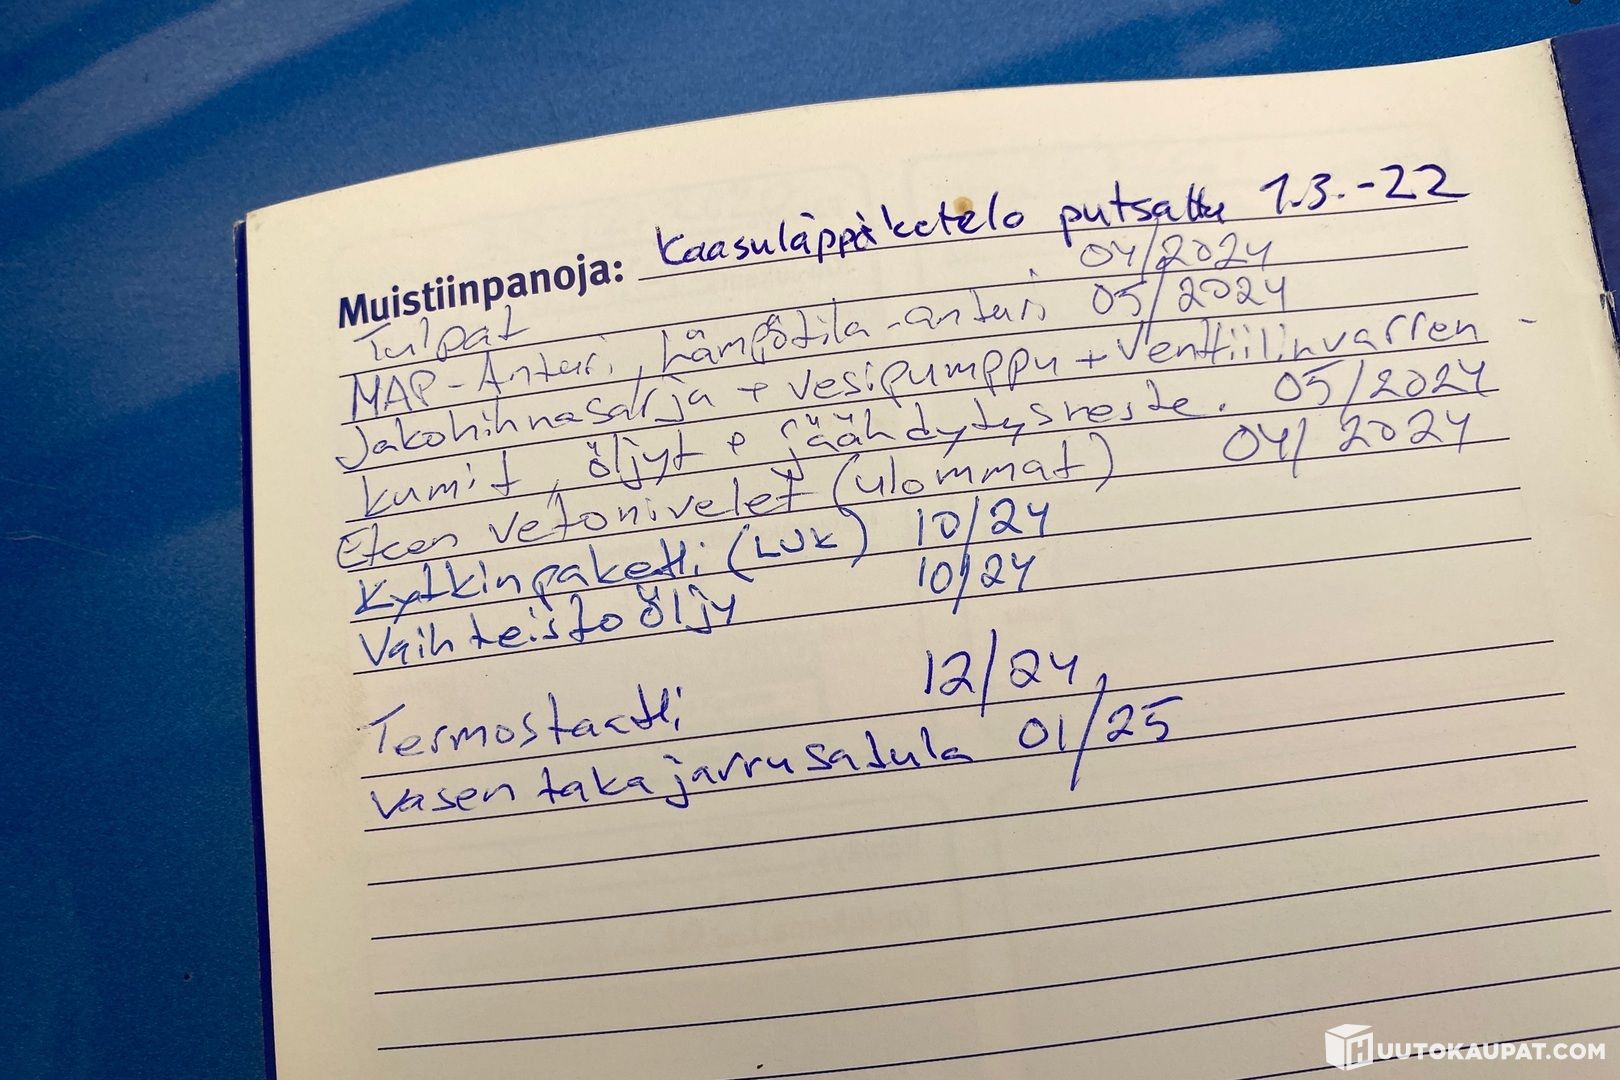 Muistiinpanoja: Kaasuläppäkotelo putsattu 1.3.-22
Tulpat 04/2024
MAP-Anturi, Lämpötila-anturi 05/2024
Jakohihnasarja + vesipumppu + Venttiilinvarren-
kumit, öljyt + jäähdytysneste. 05/2024
Etcen vetonivelet (ulommat) 04/2024
Kytkinpaketti (LUK) 10/24
Vaihteistoöljy 10/24
Termostaatti 12/24,
Vasen taka jarrusatula 01/25
HUUTOKAUPAT.COM